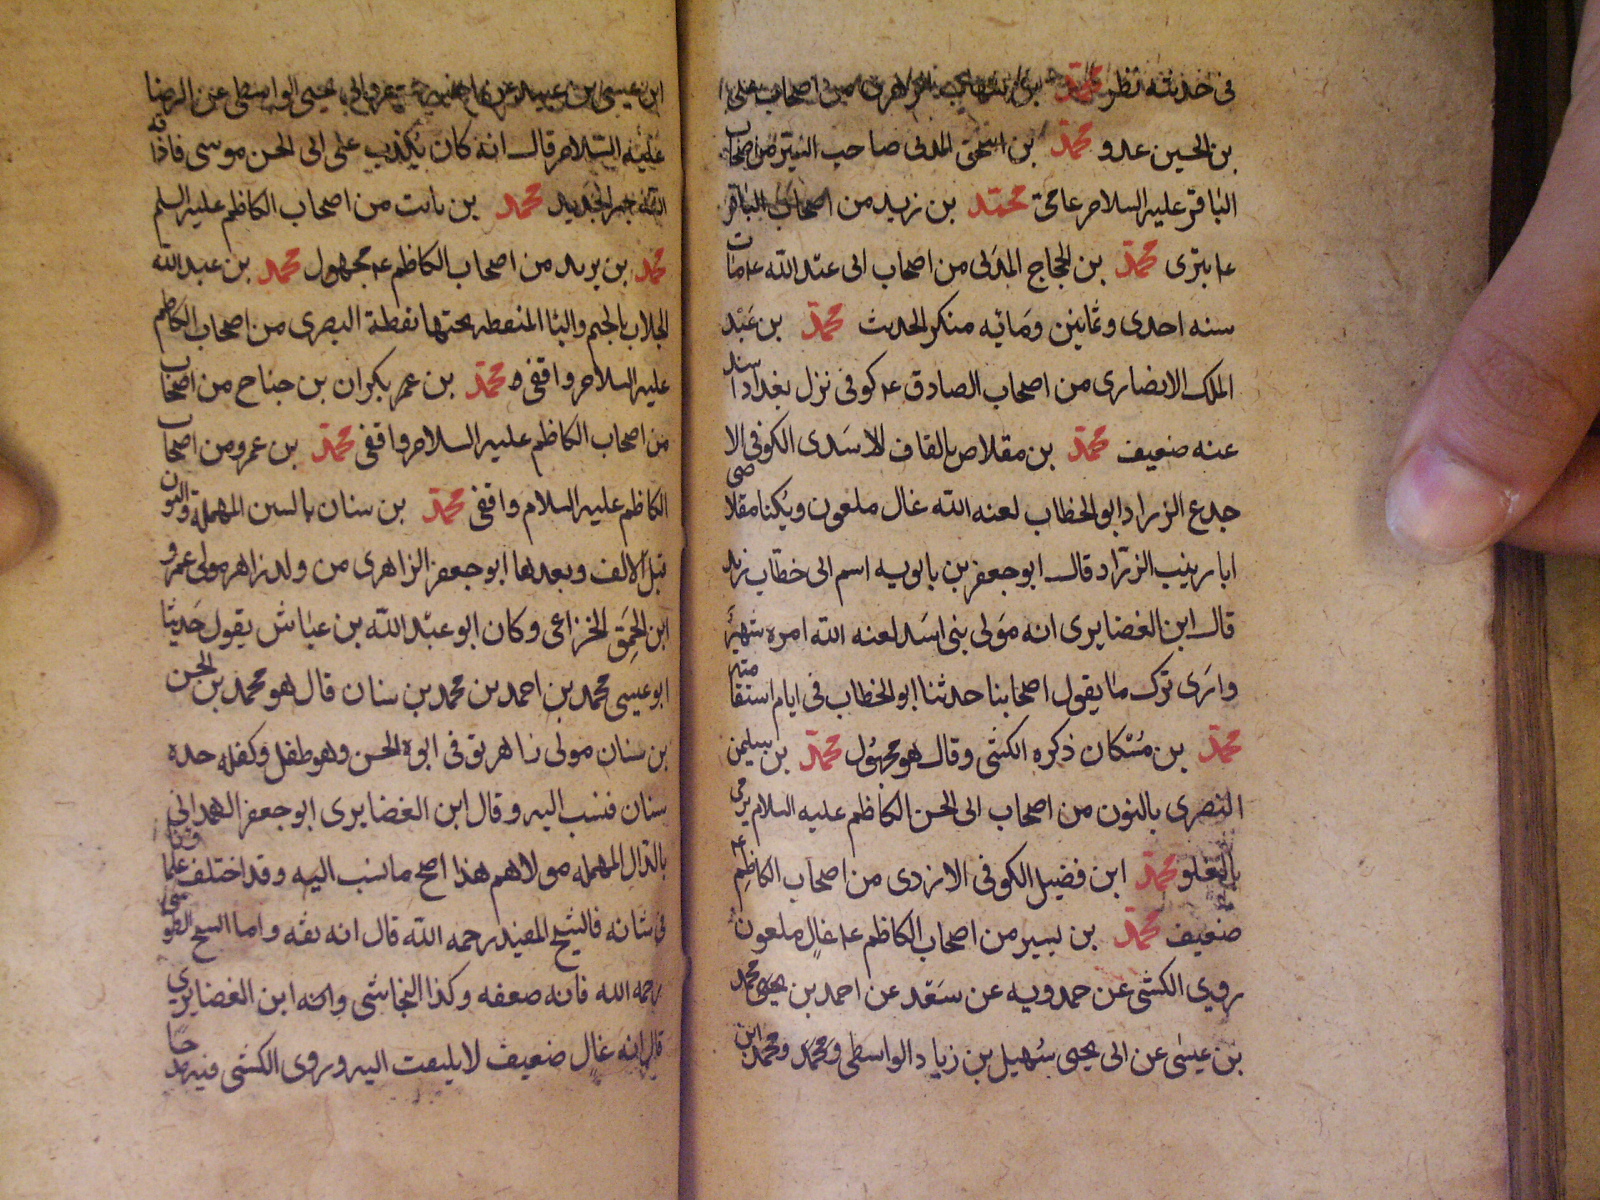 فى حديثه نظر محمد
بن الحسين عدو محمد بن اسحق المدنى صاحب السير من اصحاب
الباقر عليه السلام عامى محمد بن زيد من اصحاب الباقر
ع بترى محمد بن الحجاج المدنى من اصحاب ابى عبد الله ع مات
سنه احدى وثمانين ومائه منكر الحديث محمد بن عبد
الملك الانصارى من اصحاب الصادق ع كوفى نزل بغداد اسند
عنه ضعيف محمد بن مقلاص بالقاف الاسدى الكوفى الا
جدع الزراد ابو الخطاب لعنه الله غال ملعون ويكنا مقلاص
ابا زينب الزراد قال ابو جعفر بن بابويه اسم ابى خطاب زيد
قال ابن الغضايرى انه مولى بنى اسد لعنه الله امره شهير
وارى ترك ما يقول اصحابنا حدثنا ابو الخطاب فى ايام استقامته
محمد بن مسكان ذكره الكشى وقال هو مجهول محمد بن سليمن
النصرى بالنون من اصحاب ابى الحسن الكاظم عليه السلام يرمى
بالغلو محمد ابن فضيل الكوفى الازدى من اصحاب الكاظم ع
ضعيف محمد بن بسير من اصحاب الكاظم ع غال ملعون
روى الكشى عن حمدويه عن سعد عن احمد بن يحيى محمد
بن عيسى عن ابى يحيى سهيل بن زياد الواسطى ومحمد ومحمد ابن
ابن عيسى ابن عبيد عن يحيى الواسطى عن الرضا
عليه السلام قال انه كان يكذب على ابى الحسن موسى فاذاقه
الله حر الحديد محمد بن ثابت من اصحاب الكاظم عليه السلم
محمد بن يريد من اصحاب الكاظم ع مجهول محمد بن عبد الله
الجلاب بالجيم والبا المنقطه تحتها نقطة البصرى من اصحاب الكاظم
عليه السلام واقفى محمد بن عمر بكران بن جناح من اصحاب
من اصحاب الكاظم عليه السلام واقفى محمد بن عمرو من اصحاب
الكاظم عليه السلام واقفى محمد بن سنان بالسين المهملة والنون
قبل الالف وبعدها ابو جعفر الزاهرى من ولد زاهر مولى عمرو
ابن الحمق الخزاعى وكان ابو عبد الله بن عياش يقول حديثا
ابو عيسى محمد بن احمد بن محمد بن سنان قال هو محمد بن الحسن
بن سنان مولى زاهر توفى ابوه الحسن وهو طفل وكفله جده
سنان فنسب اليه وقال ابن الغضايرى ابو جعفر الهمدانى
بالدال المهمله مولاهم هذا اصح ما نسب اليه وقد اختلف علماؤنا
فى شانه فالشيخ المفيد رحمه الله قال انه ثقه واما الشيخ الطوسى
رحمه الله فانه ضعفه وكذا النجاشى وابن الغضايرى
قال انه غال ضعيف لا يلتفت اليه وروى الكشى فيه